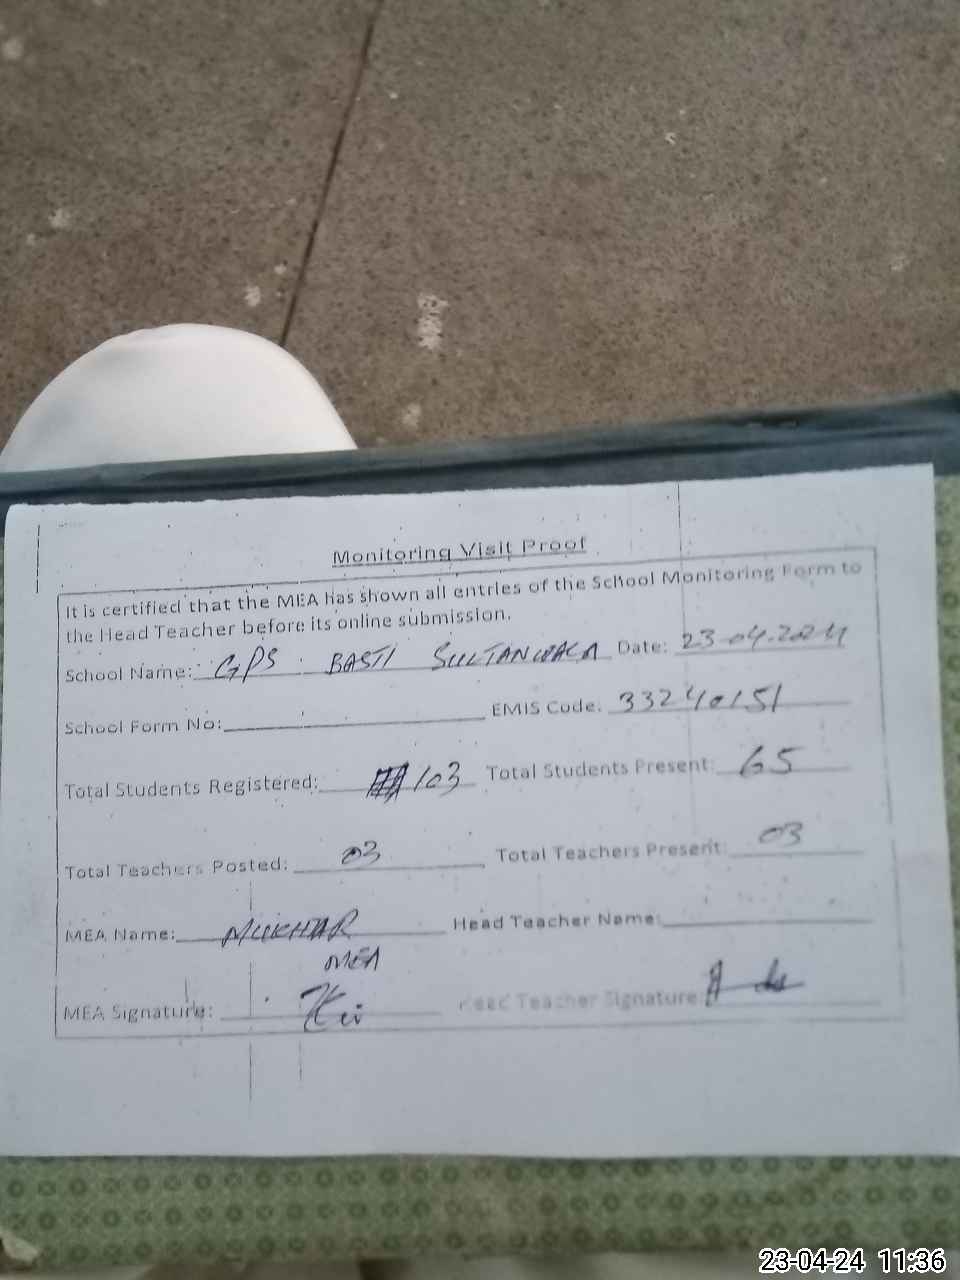 Monitoring Visit Proof
It is certified that the MEA has shown all entries of the School Monitoring Form to
the Head Teacher before its online submission.
School Name: GPS BASTI SULTANWALA Date: 23-04-2024
School Form No: EMIS Code. 33240151
Total Students Registered: 103 Total Students Present: 65
Total Teachers Posted: 03 Total Teachers Present: 03
MEA Name: MUKHTAR Head Teacher Name:
MEA
MEA Signature: Head Teacher Signature
23-04-24 11:36